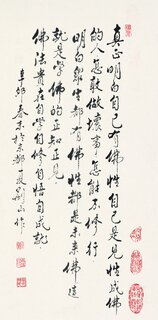 真正明白自己有佛性自己是見性成佛
的人怎敢做壞事怎能不修行
明白眾生都有佛性都是未來佛這
就是學佛的正知正見
佛法貴在自學自修自悟自成就
春末於京都